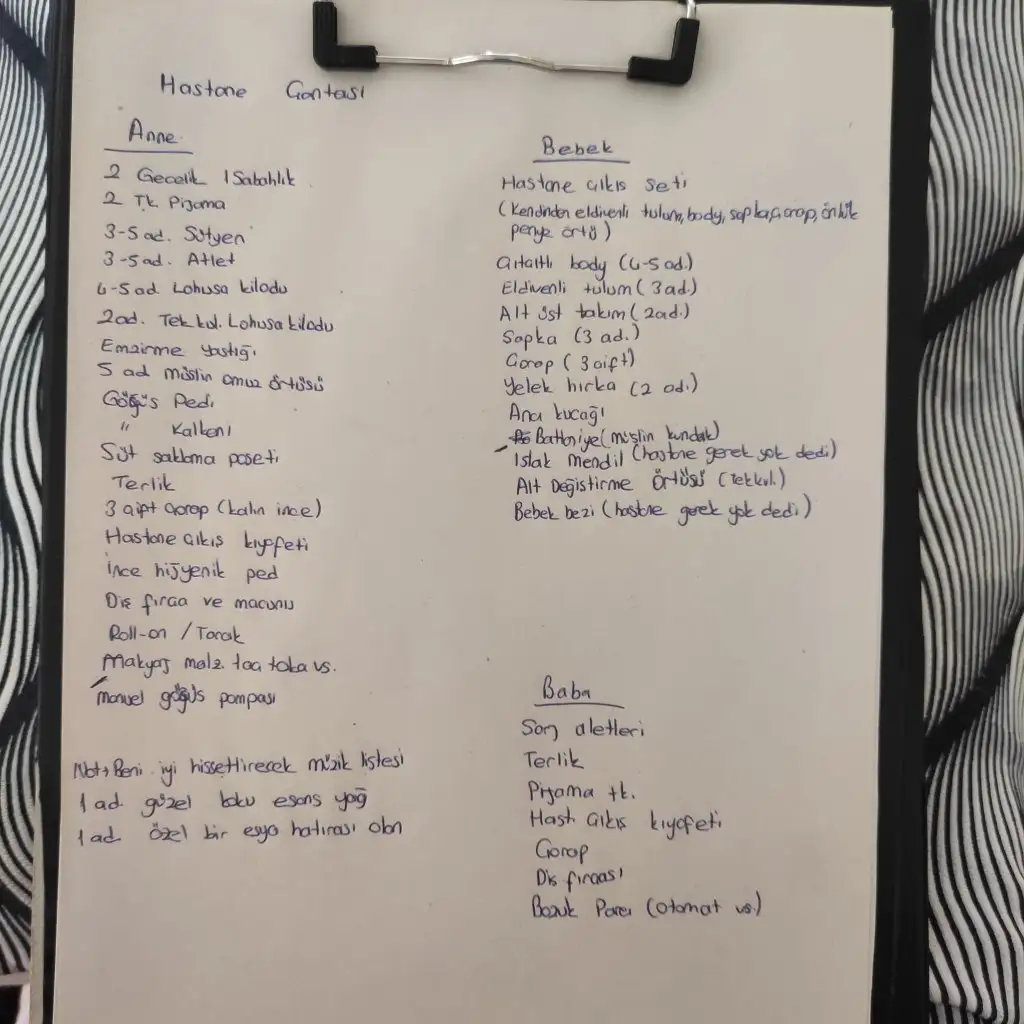 Hastane Çantası
Anne
2 Gecelik 1 Sabahlık
2 Tk. Pijama
3-5 ad. Sütyen
3-5 ad. Atlet
4-5 ad Lohusa kilodu
2 ad. Tek kul. Lohusa kilodu
Emzirme yastığı
5 ad müslin omuz örtüsü
Göğüs Pedi
" Kalkanı
Süt saklama poşeti
Terlik
3 çift çorap (kalın ince)
Hastane çıkış kıyafeti
İnce hijyenik ped
Diş fırça ve macunu
Roll-on / Tarak
Makyaj malz. taç toka vs.
Manuel göğüs pompası
Not→ Beni iyi hissettirecek müzik listesi
1 ad güzel koku esans yağ
1 ad özel bir eşya hatırası olan
Bebek
Hastane çıkış seti
(Kendinden eldivenli tulum, body, şapka, çorap, önlük
penye örtü)
Çıtçıtlı body (4-5 ad.)
Eldivenli tulum (3 ad.)
Alt üst takım (2 ad.)
Şapka (3 ad.)
Çorap (3 çift)
Yelek hırka (2 ad.)
Ana kucağı
Battaniye (müslin kundak)
Islak mendil (hastane gerek yok dedi)
Alt Değiştirme Örtüsü (Tek kul.)
Bebek bezi (hastane gerek yok dedi)
Baba
Şarj aletleri
Terlik
Pijama tk.
Hast. Çıkış kıyafeti
Çorap
Diş fırçası
Bozuk Para (otomat vs.)